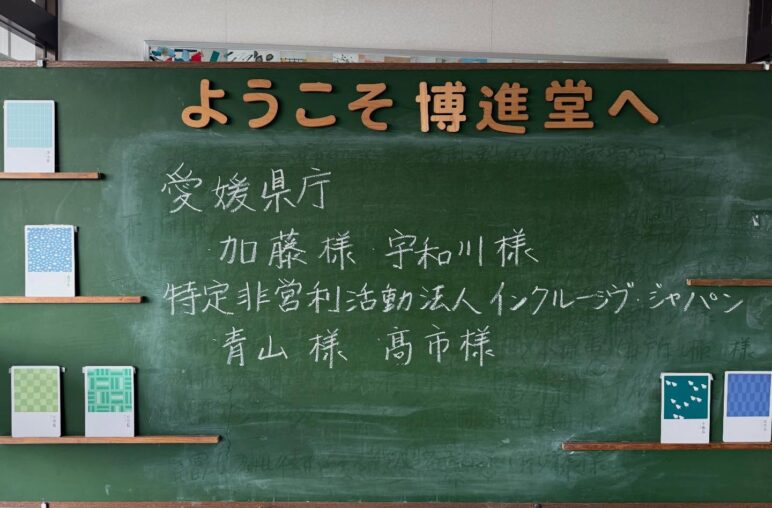 ようこそ 博進堂へ
愛媛県庁
・加藤様・宇和川様
特定非営利活動法人インクルーシヴ・ジャパン
・青山様 髙市様